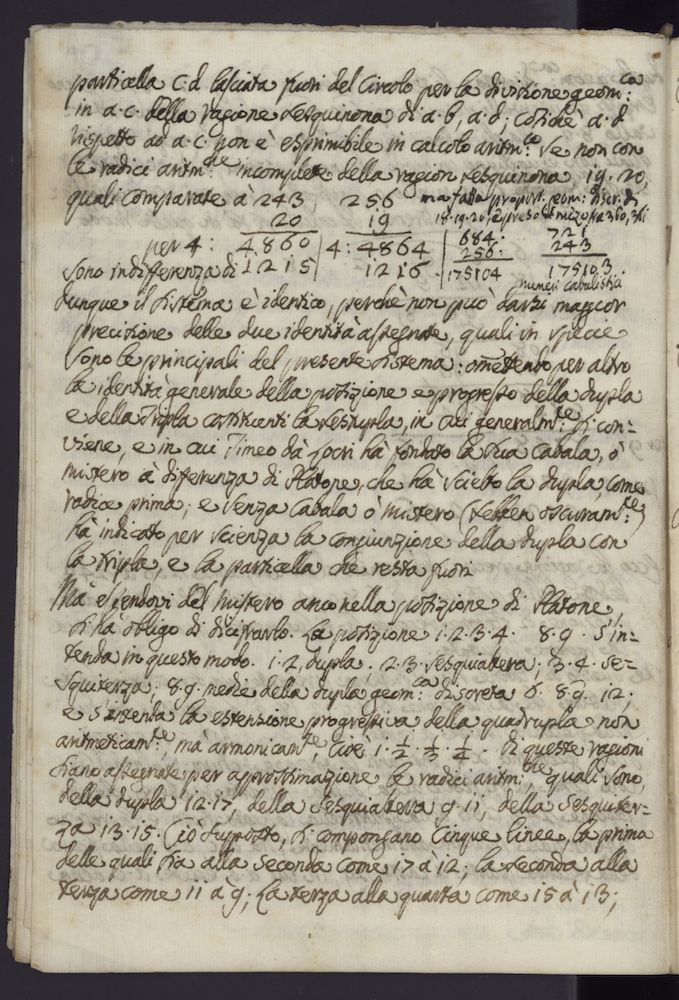 particella c.d lasciata fuori del Circolo per la divisione geom:ca
in a.c. della ragione sesquinona di a.b, a.d; cosichè a.d
rispetto ad a.c non è esprimibile in calcolo aritm:co se non con
le radici aritm:che incomplete della ragion sesquinona 19.20,
quali comparate à 243, 256 ma fatta proport. geom: discr. di
20 19 18.19.20, e preso il mezo fra 360, 361
per 4: 4860 | 4: 4864 | 684. 721
256. 243
sono in differenza di 1215 | 1216. | 175104 175103.
numeri cabalistici
dunque il sistema è identico, perchè non può darsi maggior
precisione delle due identità assegnate, quali in specie
sono le principali del presente sistema: omettendo per altro
la identità generale della posizione e progresso della dupla
e della tripla costituenti la sestupla, in cui generalm:te si con=
viene, e in cui Timeo dà Locri hà fondato la sua Cabala, ò
mistero à differenza di Platone, che hà scielto la dupla, come
radice prima; e senza cabala ò mistero (sebben oscuram:te)
hà indicato per scienza la congiunzione della dupla con
la tripla, e la particella che resta fuori
Mà essendovi del mistero anco nella posizione di Platone,
si hà obligo di dicifrarlo. La posizione 1.2.3.4. 8.9. s'in=
tenda in questo modo. 1.2, dupla. 2.3. sesquialtera; 3.4. se=
squiterza; 8.9. medie della dupla geom:ca discreta 6. 8.9. 12;
e s'intenda la estensione progressiva della quadrupla non
aritmeticam:te, mà armonicam:te, cioè 1. 1/2. 1/3. 1/4. Di queste ragioni
siano assegnate per approssimazione le radici aritm:che, quali sono,
della dupla 12.17, della sesquialtera 9.11, della sesquiter=
za 13.15. Ciò supposto, si compongano cinque linee, la prima
delle quali sia alla seconda come 17 à 12; la seconda alla
terza come 11 à 9; la terza alla quarta come 15 à 13;